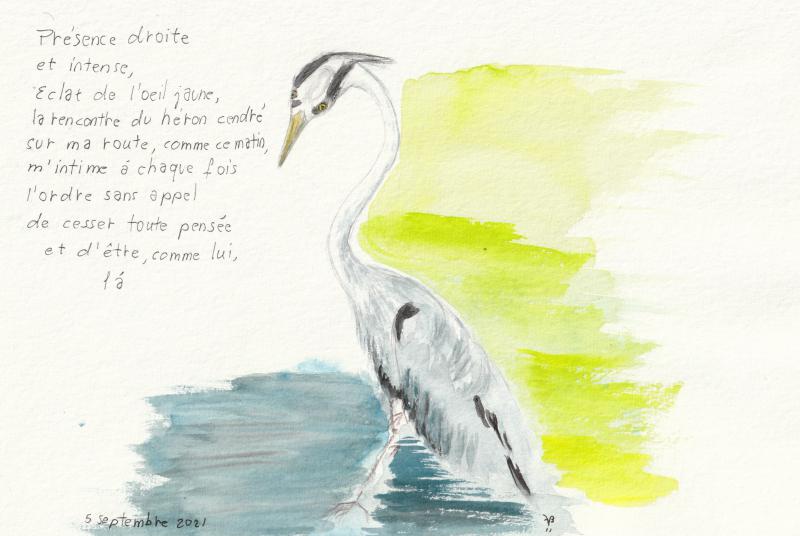 Présence droite
et intense,
Eclat de l'oeil jaune,
la rencontre du héron cendré
sur ma route, comme ce matin,
m'intime á chaque fois
l'ordre sans appel
de cesser toute pensée
et d'être, comme lui,
lá
5 septembre 2021